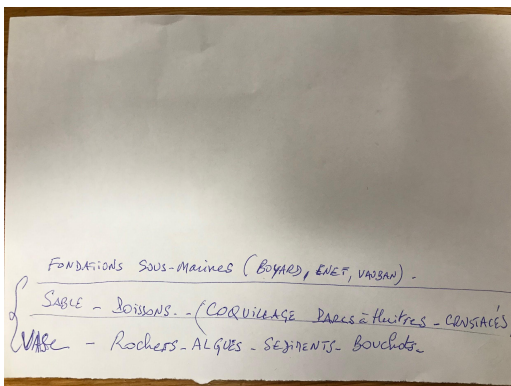 FONDATIONS SOUS-MARINES (BOYARD, ENET, VAUBAN).
SABLE - POISSONS.-(COQUILLAGE PARCS à Huitres - CRUSTACÉS
VASE - Rochers - ALGUES - SEDIMENTS - Bouchots